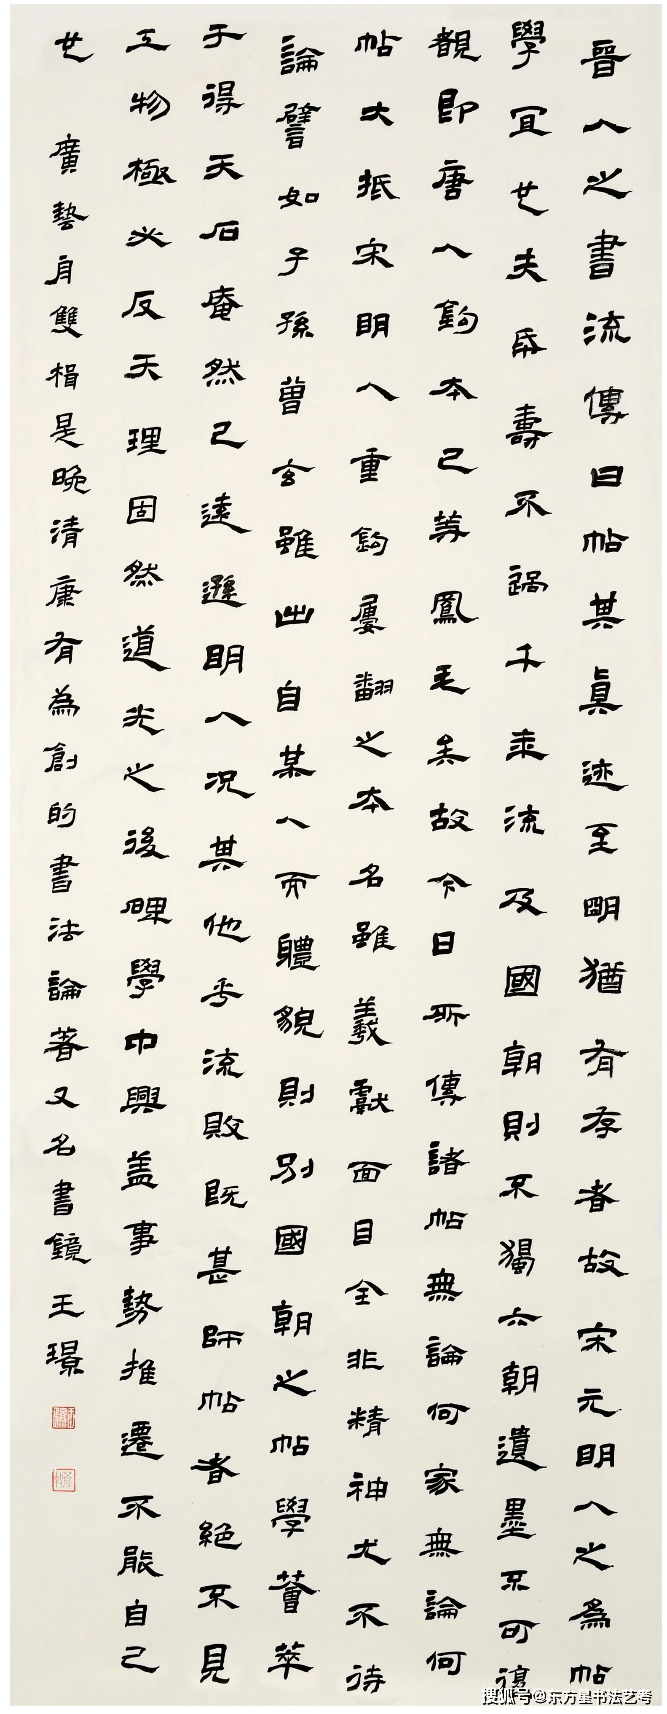 晉人之書流傳曰帖其真迹至明猶有存者故宋元明人之為帖
學宜也夫帋壽不過千乘流及國朝則不獨六朝遺墨不可復
覩即唐人鉤本已等鳳毛矣故今日所傳諸帖無論何家無論何
帖大抵宋明人重鉤屢翻之本名雖羲獻面目全非精神尤不待
論譬如子孫曾玄雖出自某人而體貌則別國朝之帖學薈萃
于得天石庵然已遠遜明人况其他乎流敗既甚師帖者絕不見
工物極必反天理固然道光之後碑學中興盖事勢推遷不能自己
也 廣藝舟雙楫是晚清康有為創的書法論著又名書鏡王璟
搜狐号@东方星书法艺考